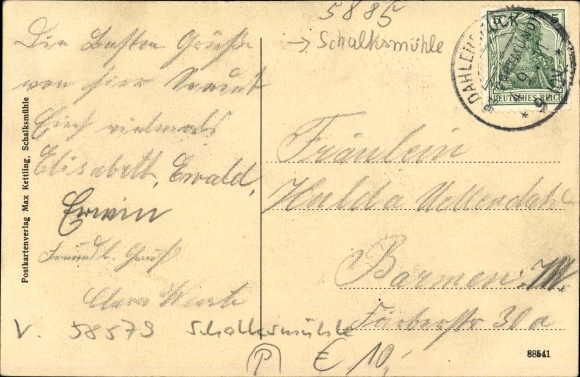 5885
→ Schalksmühle
Die besten Grüße
von hier sendet
Euch vielmals
Elisabeth, Ewald,
Erwin
Freundl. Gruß
Clara
V. 58579 Schalksmühle
P € 10,-
Postkartenverlag Max Kettling, Schalksmühle
DAHLERBRÜCK
5
DEUTSCHES REICH
Fräulein
Hulda
Barmen, W.
30a
88541